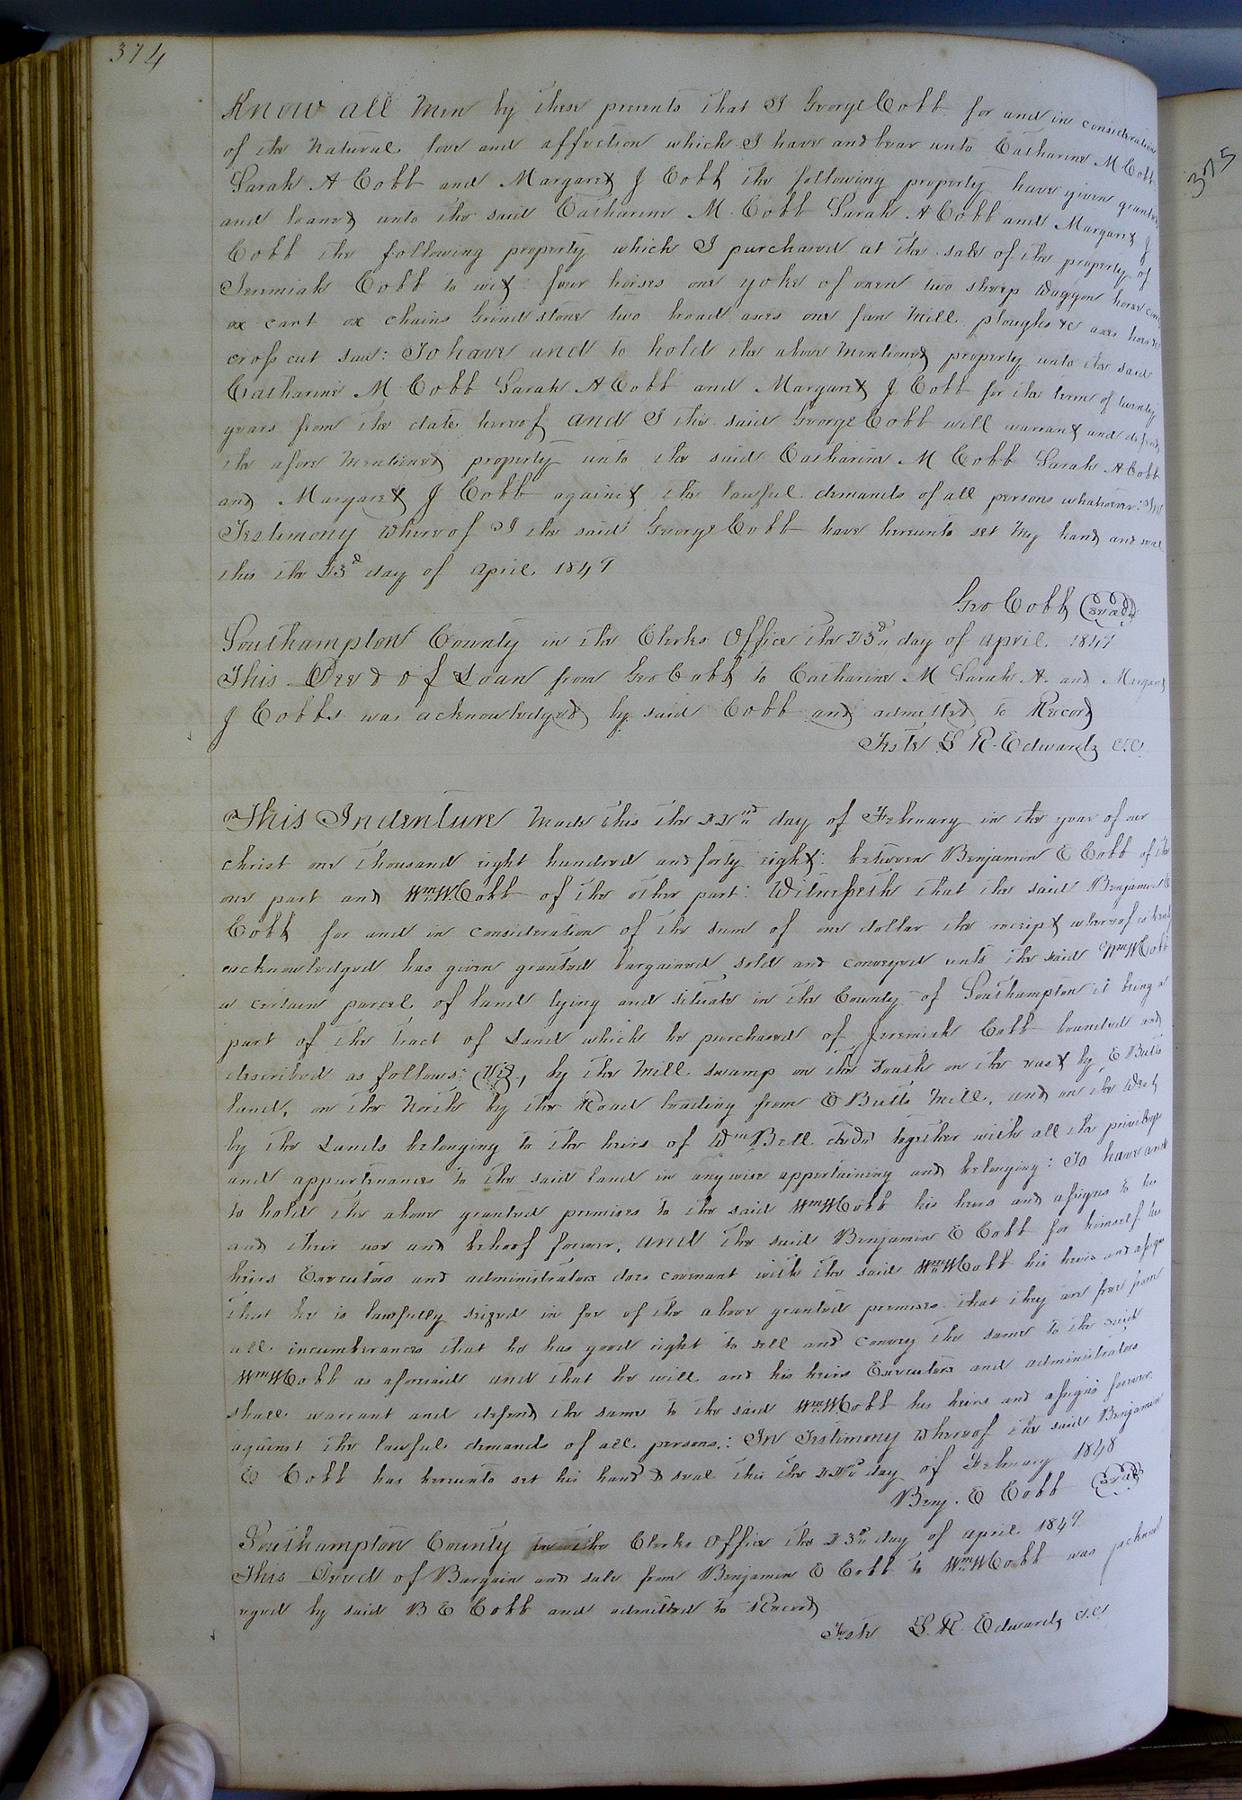 374
375
Know all Men by these presents that I George Cobb for and in consideration
of the Natural love and affection which I have and bear unto Catharine M. Cobb
Sarah A Cobb and Margaret J Cobb the following property have given granted
and loaned unto the said Catharine M. Cobb Sarah A Cobb and Margaret J
Cobb the following property which I purchased at the sale of the property of
Jeremiah Cobb to wit: four horses one yoke of oxen two sheep Waggon horse cart
ox cart ox chains Grind stone two broad axes one fan Mill ploughs &c axes hoes &c
cross cut saw: To have and to hold the above Mentioned property unto the said
Catharine M. Cobb Sarah A Cobb and Margaret J Cobb for the term of twenty
years from the date hereof and I the said George Cobb will warrant and defend
the afore Mentioned property unto the said Catharine M Cobb Sarah A Cobb
and Margaret J Cobb against the lawful demands of all persons whatsoever: In
Testimony Whereof I the said George Cobb have hereunto set My hand and seal
this the 23d day of April 1849
Geo Cobb (Seal)
Southampton County in the Clerks Office the 23d day of April 1849
This Deed of Loan from Geo Cobb to Catharine M Sarah A. and Margaret
J Cobbs was acknowledged by said Cobb and admitted to Record
Teste L R. Edwards C.C.
This Indenture Made this the 22nd day of February in the year of our
christ one thousand eight hundred and forty eight: between Benjamin E Cobb of the
one part and Wm. W. Cobb of the other part: Witnesseth that the said Benjamin E
Cobb for and in consideration of the sum of one dollar the receipt whereof is hereby
acknowledged has given granted bargained sold and conveyed unto the said Wm W Cobb
a certain parcel of land lying and situate in the County of Southampton it being a
part of the tract of Land which he purchased of Jeremiah Cobb bounded and
described as follows: (Viz, by the Mill swamp on the South on the east by E Butts
land, on the North by the Road leading from E Butts Mill, and on the West
by the Lands belonging to the heirs of Wm Bell decd together with all the privileges
and appurtenances to the said land in anywise appertaining and belonging: To have and
to hold the above granted premises to the said Wm W Cobb his heirs and assigns to his
and their use and behoof forever, and the said Benjamin E Cobb for himself his
heirs Executors and administrators does covenant with the said Wm W Cobb his heirs and assigns
that he is lawfully seized in fee of the above granted premises that they are free from
all incumbrances that he has good right to sell and convey the same to the said
Wm W Cobb as aforesaid and that he will and his heirs Executors and administrators
shall warrant and defend the same to the said Wm. W Cobb his heirs and assigns forever
against the lawful demands of all persons.: In Testimony Whereof the said Benjamin
E Cobb has hereunto set his hand & seal this the 22d day of February 1848
Benj. E Cobb (Seal)
Southampton County in the Clerks Office the 23d day of April 1849
This Deed of Bargain and sale from Benjamin E Cobb to Wm W Cobb was acknowl
edged by said B E Cobb and admitted to Record
Teste L. R. Edwards C.C